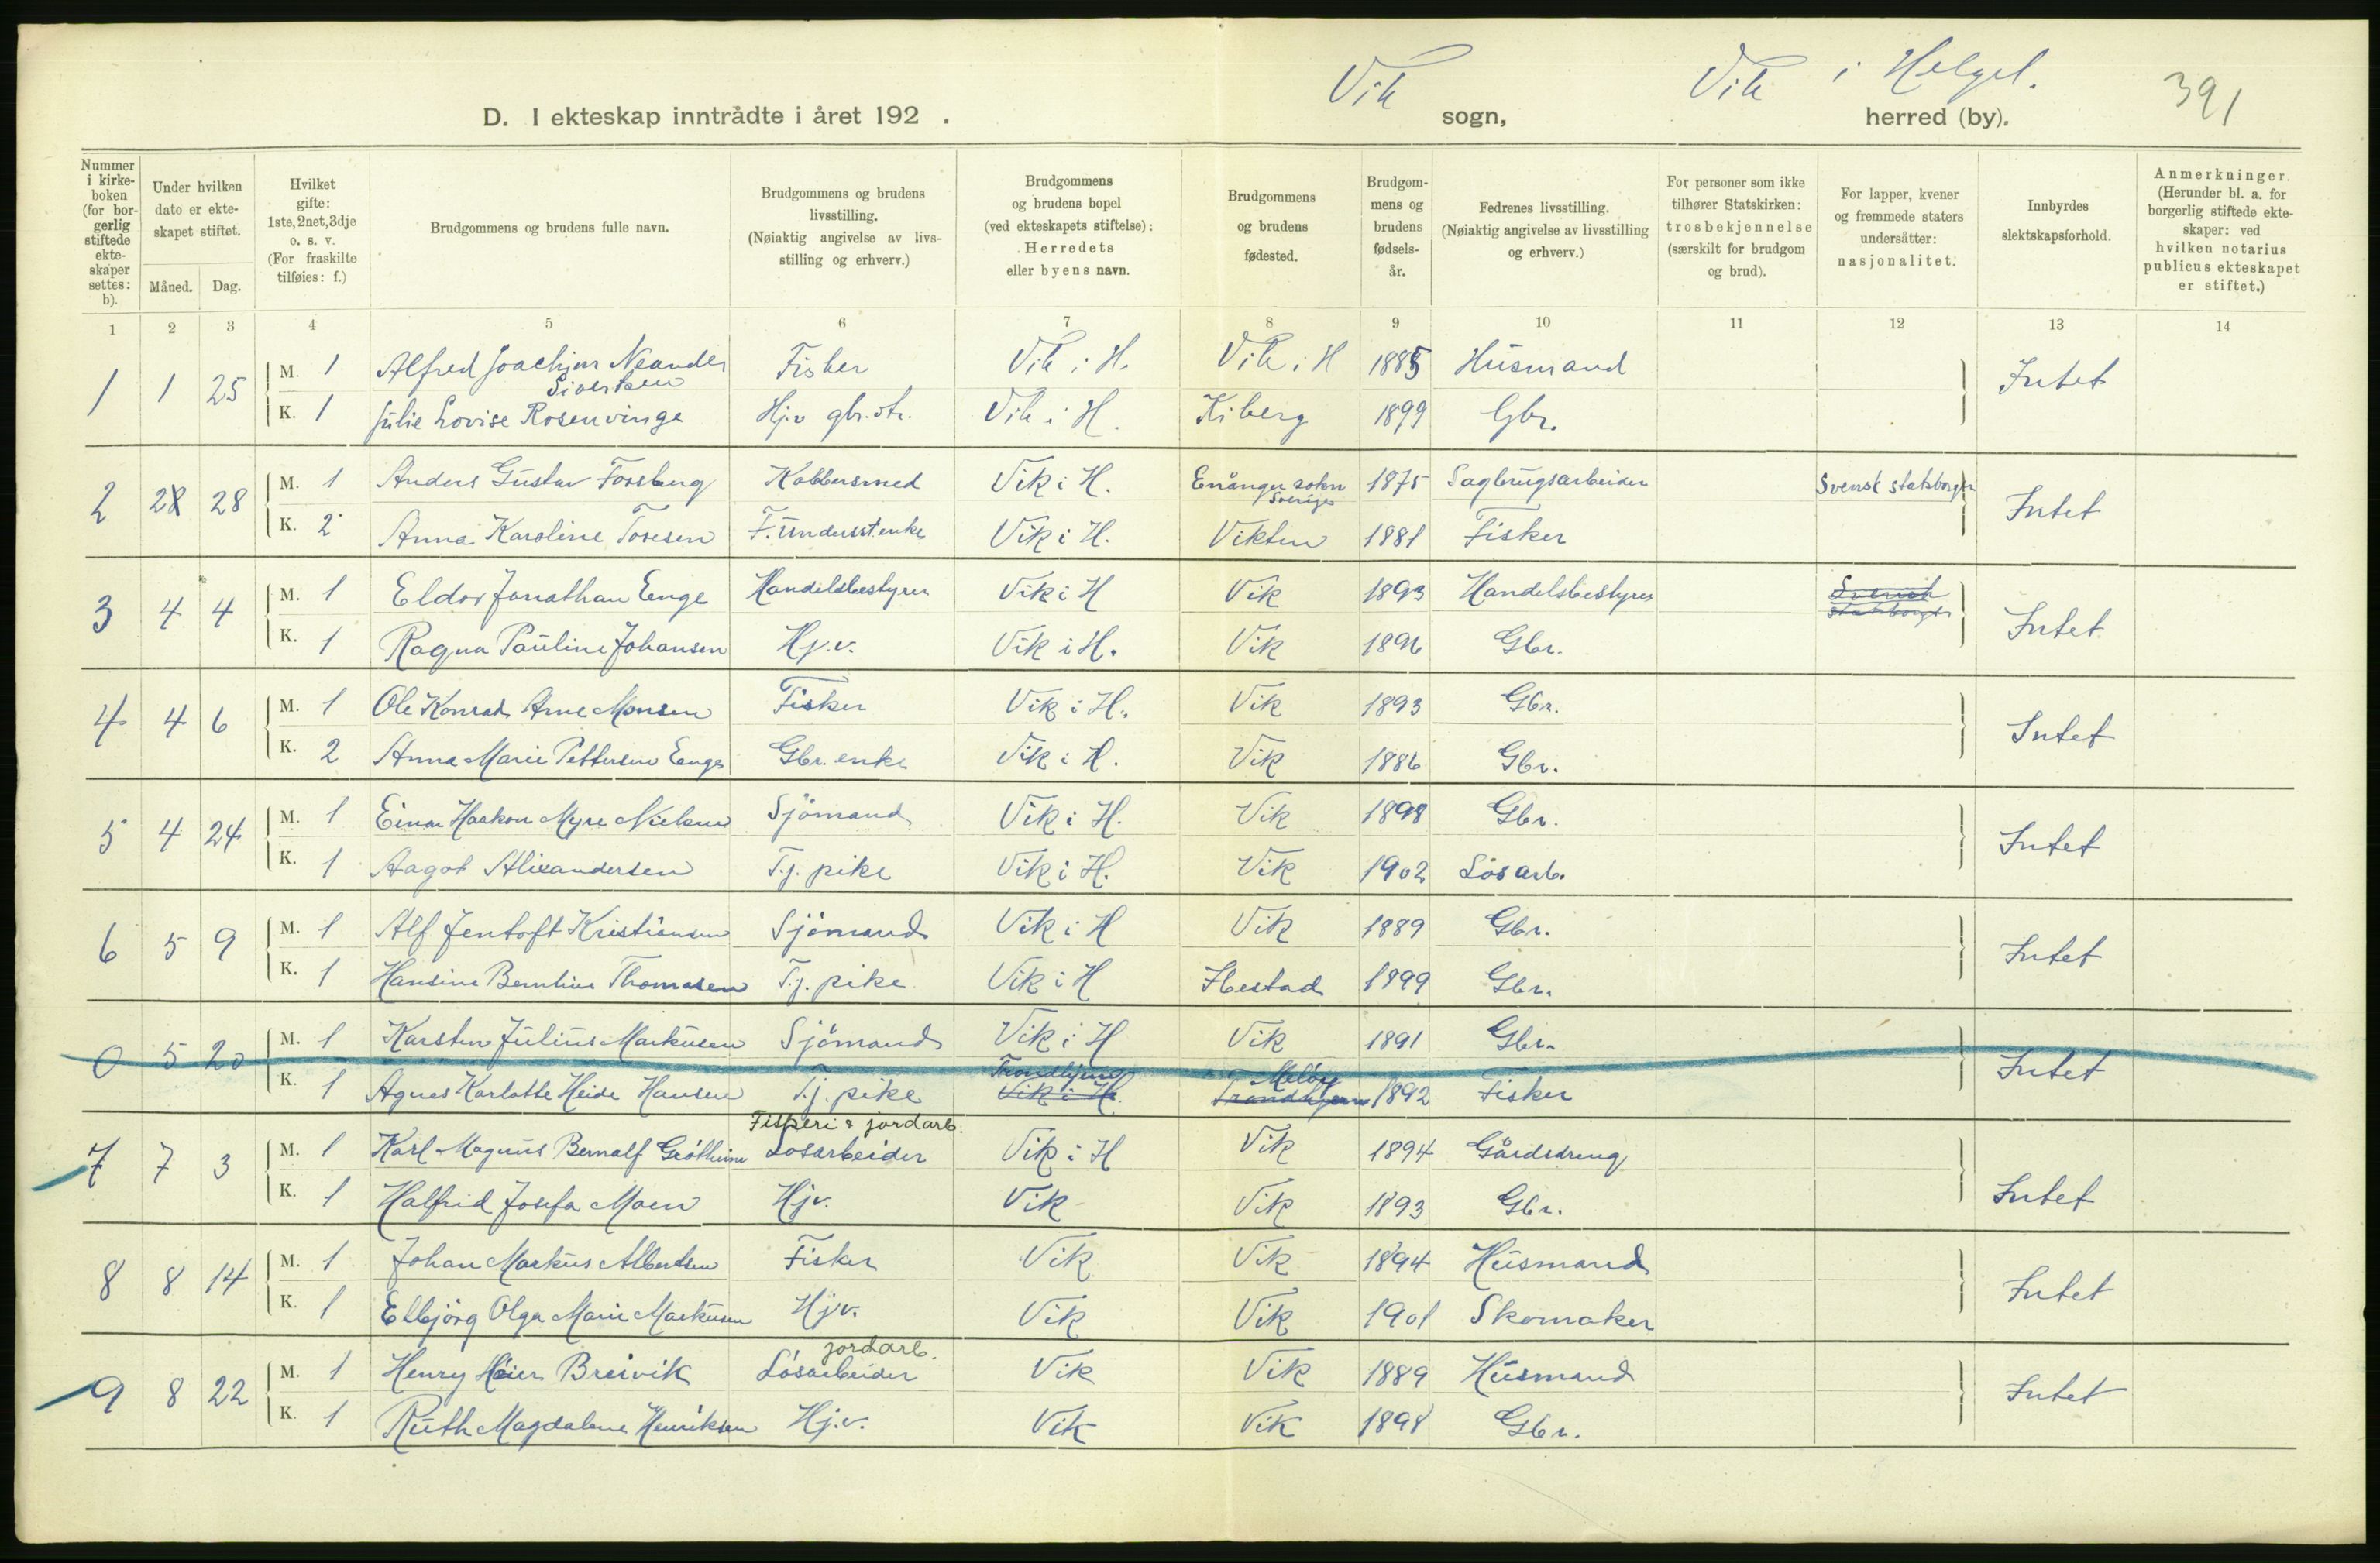 Vik Vik i Helgel. 391
D. I ekteskap inntrådte i året 192 . sogn, herred (by).
Nummer i kirke-boken (for bor-gerlig stiftede ekte-skaper settes: b). Under hvilken dato er ekte-skapet stiftet. Måned. Dag. Hvilket gifte: 1ste, 2net, 3dje o. s. v. (For fraskilte tilføies: f.) Brudgommens og brudens fulle navn. Brudgommens og brudens livsstilling. (Nøiaktig angivelse av livs-stilling og erhverv.) Brudgommens og brudens bopel (ved ekteskapets stiftelse): Herredets eller byens navn. Brudgommens og brudens fødested. Brudgom-mens og brudens fødsels-år. Fedrenes livsstilling. (Nøiaktig angivelse av livsstilling og erhverv.) For personer som ikke tilhører Statskirken: trosbekjennelse (særskilt for brudgom og brud). For lapper, kvener og fremmede staters undersåtter: nasjonalitet. Innbyrdes slektskapsforhold. Anmerkninger. (Herunder bl. a. for borgerlig stiftede ekte-skaper: ved hvilken notarius publicus ekteskapet er stiftet.)
1 2 3 4 5 6 7 8 9 10 11 12 13 14
1 1 25 M. 1 Alfred Joachim Neander Sivertsen Fisker Vik i H. Vik i H 1885 Husmand Intet
K. 1 Julie Lovise Rosenvinge Hj.v gbr.dtr. Vik i H. Kiberg 1899 Gbr.
2 2 28 M. 1 Anders Gustav Forsberg Kobbersmed Vik i H. Enånger sokn Sverige 1875 Sagbrugsarbeider Svensk statsborger Intet
K. 2 Anna Karoline Toresen F. Understt.enke Vik i H. Vikten 1881 Fisker
3 4 4 M. 1 Eldor Jonathan Enge Handelsbestyrer Vik i H Vik 1893 Handelsbestyrer Svensk statsborger Intet
K. 1 Ragna Pauline Johansen Hj.v. Vik i H. Vik 1896 Gbr.
4 4 6 M. 1 Ole Konrad Arne Monsen Fisker Vik i H. Vik 1893 Gbr. Intet
K. 2 Anna Marie Pettersen Enge Gbr. enke Vik i H. Vik 1886 Gbr.
5 4 24 M. 1 Einar Haakon Myre Nielsen Sjömand Vik i H. Vik 1898 Gbr. Intet
K. 1 Aagot Alexandersen T.j. pike Vik i H. Vik 1902 Lösarb.
6 5 9 M. 1 Alf Jentoft Kristiansen Sjömand Vik i H Vik 1889 Gbr. Intet
K. 1 Hansine Berntine Thomasen T.j. pike Vik i H Ibestad 1899 Gbr.
0 5 20 M. 1 Karsten Julius Markusen Sjömand Vik i H Vik 1891 Gbr. Intet
K. 1 Agnes Karlotte Heide Hansen T.j. pike Trondhjem Vik i H. Melöy Trondhjem 1892 Fisker
7 7 3 M. 1 Karl Magnus Bernalf Gröttheim Fiskeri & jordarb. Losarbeider Vik i H Vik 1894 Gårdsdreng Intet
K. 1 Halfrid Josefa Moen Hjv. Vik Vik 1893 Gbr.
8 8 14 M. 1 Johan Markus Albertsen Fisker Vik Vik 1894 Husmand Intet
K. 1 Elbjörg Olga Marie Markusen Hjv. Vik Vik 1901 Skomaker
9 8 22 M. 1 Henry Meier Breivik jordarb. Lösarbeider Vik Vik 1889 Husmand Intet
K. 1 Ruth Magdalene Henriksen Hj.v. Vik Vik 1898 Gbr.